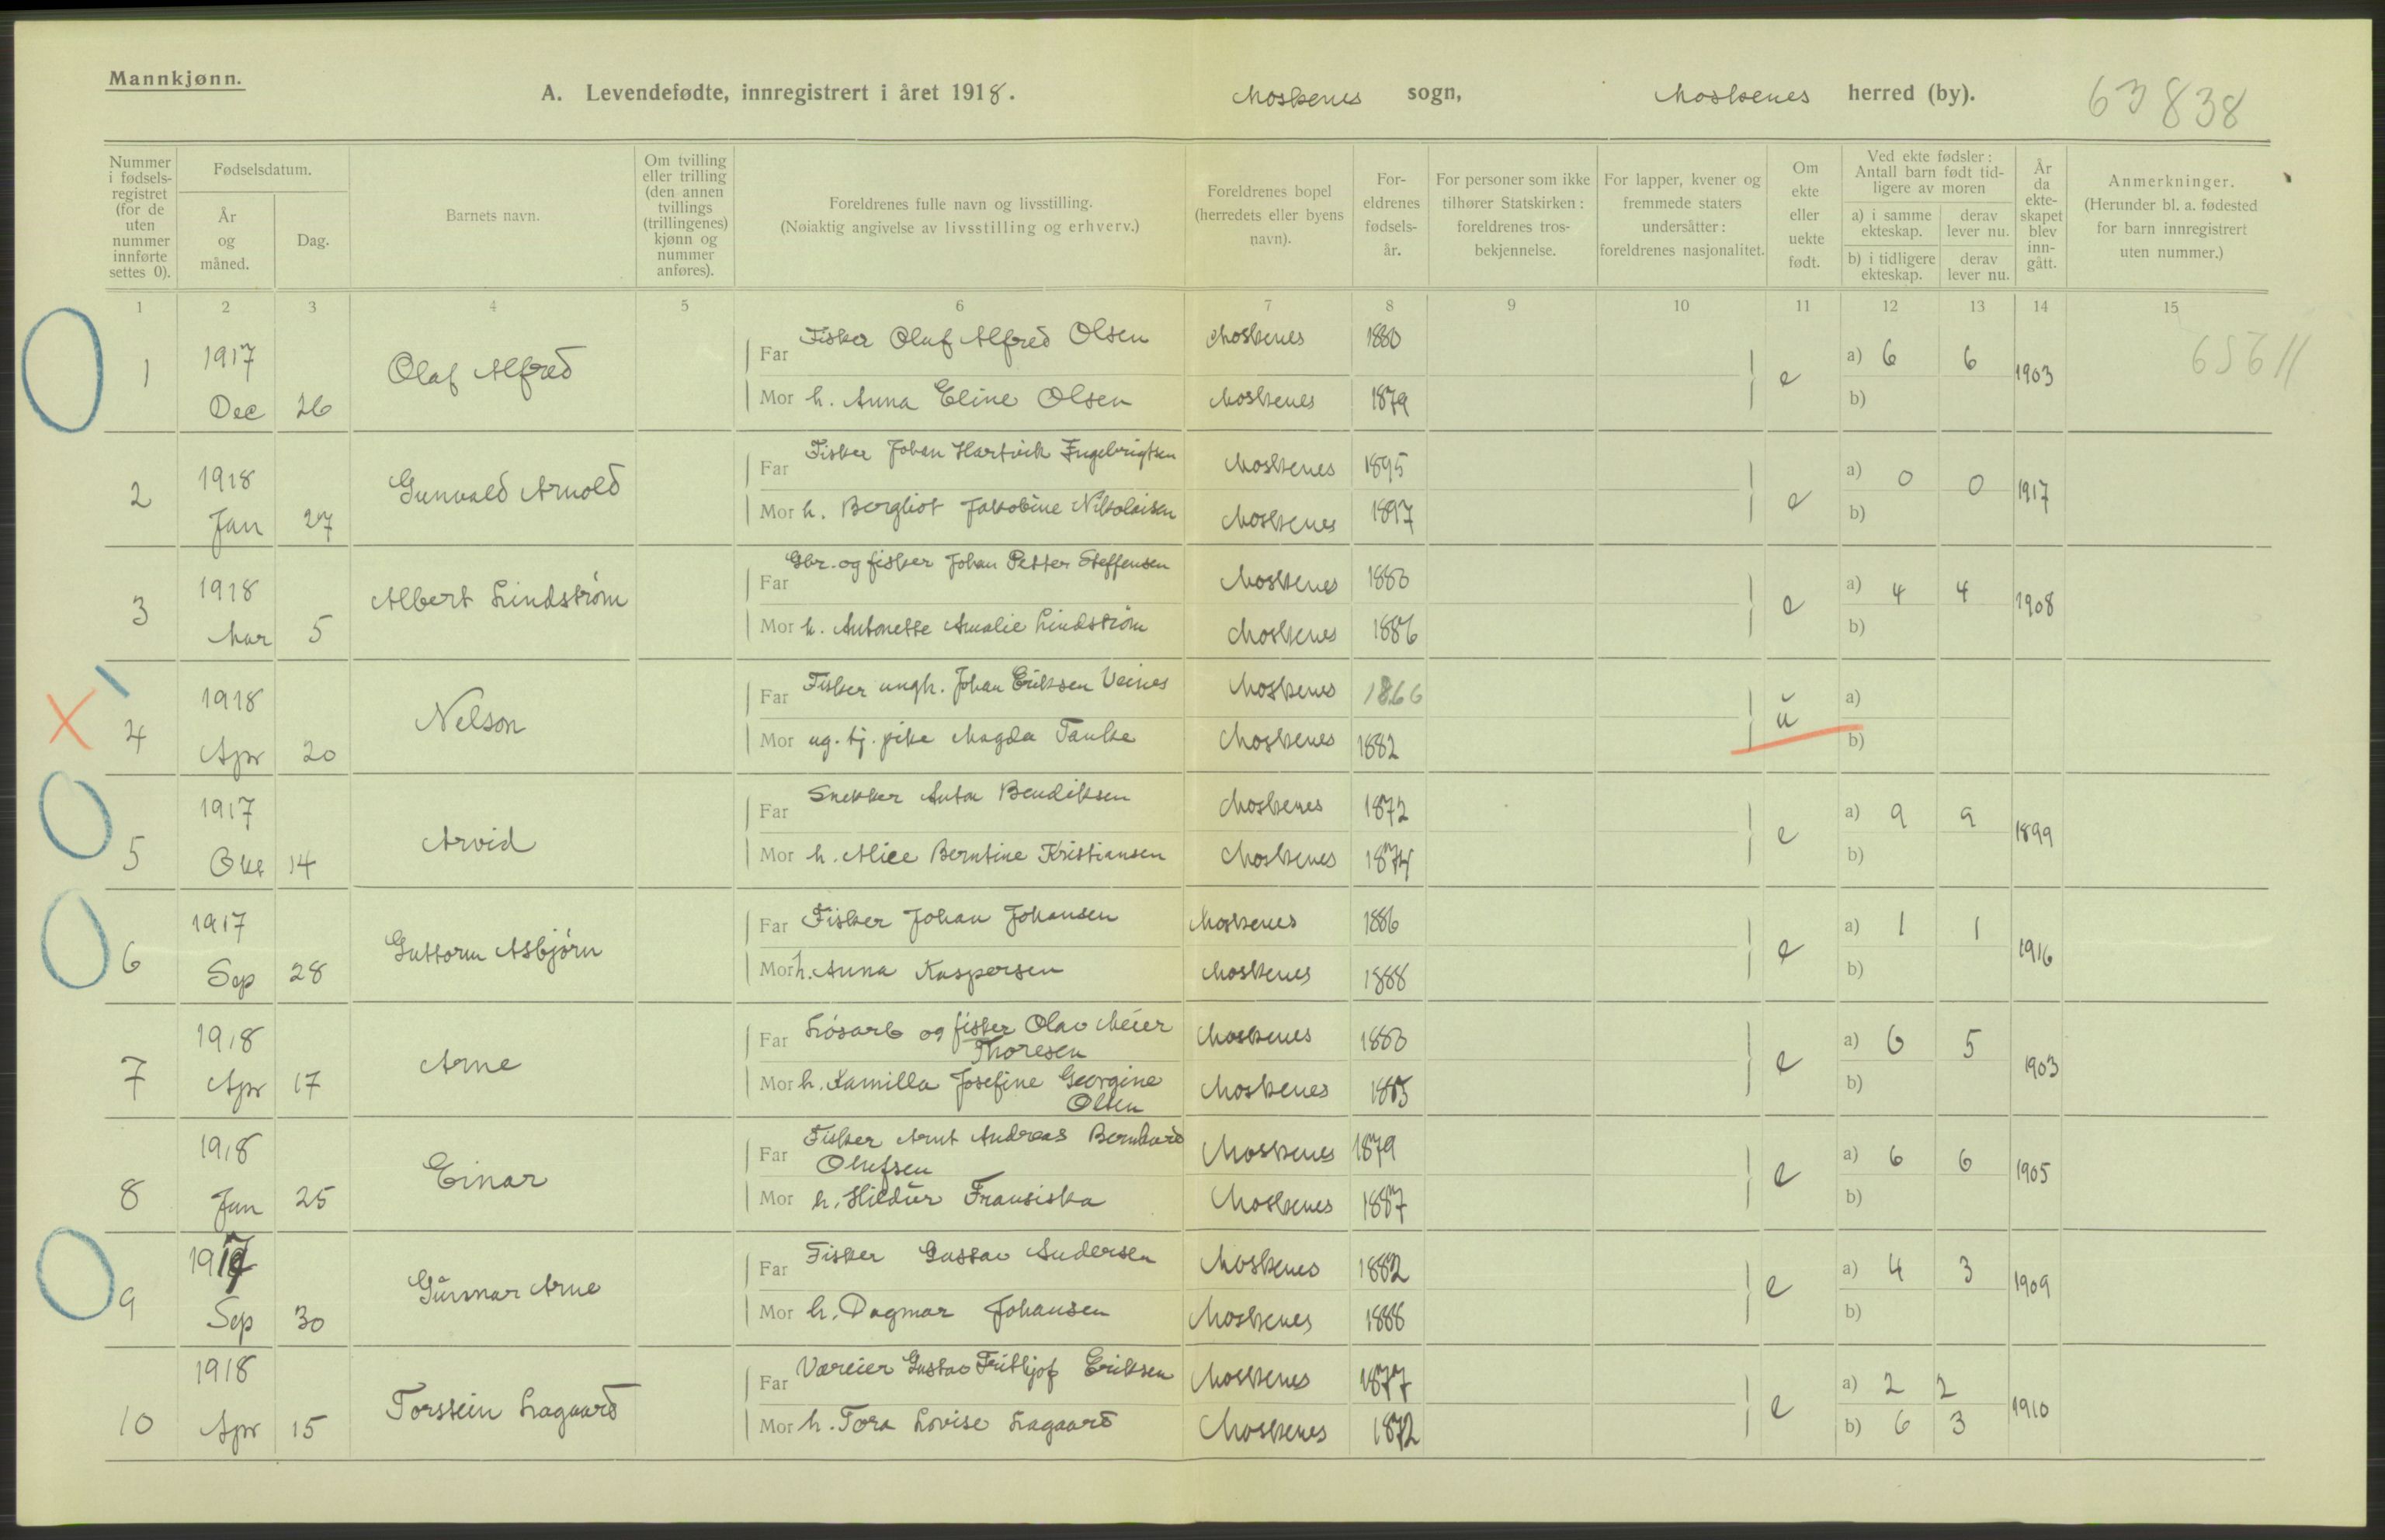 Mannkjønn.
A. Levendefødte, innregistrert i året 1918. Moskenes sogn, Moskenes herred (by). 63838
Nummer i fødsels-registret (for de uten nummer innførte settes 0).
Fødselsdatum.
År og måned.
Dag.
Barnets navn.
Om tvilling eller trilling (den annen tvillings (trillingenes) kjønn og nummer anføres).
Foreldrenes fulle navn og livsstilling.
(Nøiaktig angivelse av livsstilling og erhverv.)
Foreldrenes bopel (herredets eller byens navn).
For-eldrenes fødsels-år.
For personer som ikke tilhører Statskirken: foreldrenes tros-bekjennelse.
For lapper, kvener og fremmede staters undersåtter: foreldrenes nasjonalitet.
Om ekte eller uekte født.
Ved ekte fødsler: Antall barn født tid-ligere av moren
a) i samme ekteskap. derav lever nu.
b) i tidligere ekteskap. derav lever nu.
År da ekte-skapet blev inn-gått.
Anmerkninger.
(Herunder bl. a. fødested for barn innregistrert uten nummer.)
1 2 3 4 5 6 7 8 9 10 11 12 13 14 15
1 1917 Dec 26 Olaf Alfred
Far Fisker Olaf Alfred Olsen Moskenes 1880
Mor h. Anna Eline Olsen Moskenes 1879
e a) 6 6 b) 1903 65611
2 1918 Jan 27 Gunvald Arnold
Far Fisker Johan Hartvik Engebrigtsen Moskenes 1895
Mor h. Bergliot Jakobine Nikolaisen Moskenes 1897
e a) 0 0 b) 1917
3 1918 Mar 5 Albert Lindstrøm
Far Gbr. og fisker Johan Petter Steffensen Moskenes 1880
Mor h. Antonette Amalie Lindstrøm Moskenes 1886
e a) 4 4 b) 1908
4 1918 Apr 20 Nelson
Far Fisker ungk. Johan Eriksen Veines Moskenes 1866
Mor ug. tj. pike Magda Taulke Moskenes 1882
u a) b)
5 1917 Okt 14 Arvid
Far Snekker Anton Bendiksen Moskenes 1872
Mor h. Alice Berntine Kristiansen Moskenes 1874
e a) 9 9 b) 1899
6 1917 Sep 28 Guttorm Asbjørn
Far Fisker Johan Johansen Moskenes 1886
Mor h. Anna Kaspersen Moskenes 1888
e a) 1 1 b) 1916
7 1918 Apr 17 Arne
Far Løsarb og fisker Olav Meier Thoresen Moskenes 1880
Mor h. Kamilla Josefine Georgine Olsen Moskenes 1885
e a) 6 5 b) 1903
8 1918 Jan 25 Einar
Far Fisker Arnt Andreas Bernhard Olufsen Moskenes 1879
Mor h. Hildur Fransiska Moskenes 1887
e a) 6 6 b) 1905
9 1917 Sep 30 Gunnar Arne
Far Fisker Gustav Andersen Moskenes 1882
Mor h. Dagmar Johansen Moskenes 1888
e a) 4 3 b) 1909
10 1918 Apr 15 Torstein Lagaard
Far Væreier Gustav Frithjof Eriksen Moskenes 1877
Mor h. Tora Lovise Lagaard Moskenes 1872
e a) 2 2 b) 6 3 1910